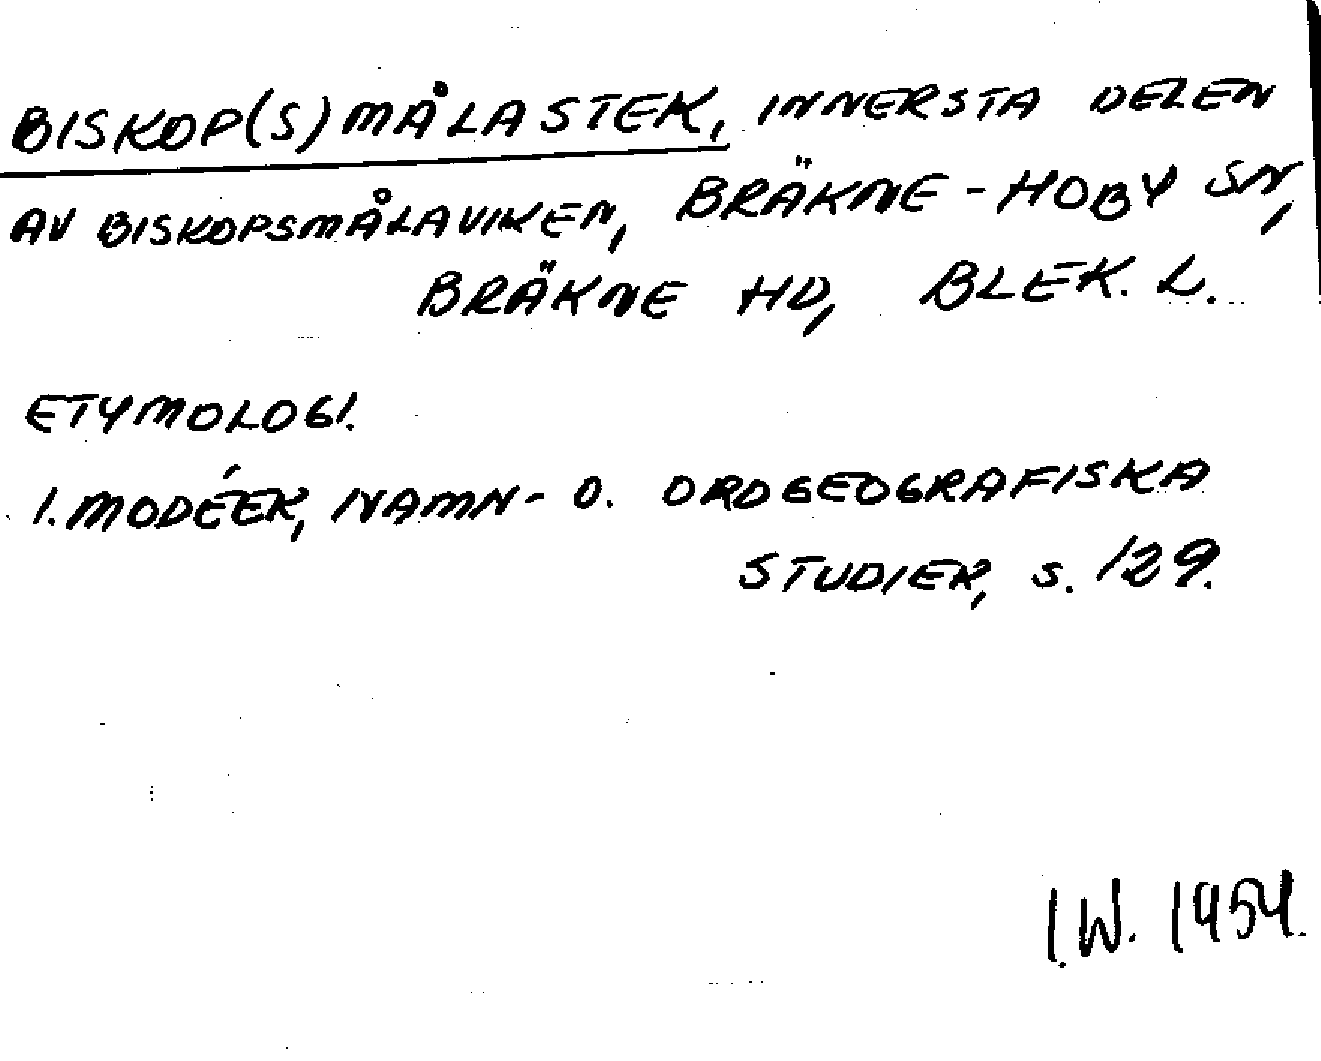 BISKOP(S)MÅLASTEK, INNERSTA DELEN
AV BISKOPSMÅLAVIKEN, BRÄKNE-HOBY SN,
BRÄKNE HD, BLEK. L.
ETYMOLOGI.
I. MODÉER, NAMN- O. ORDGEOGRAFISKA
STUDIER, S. 129.
I.W. 1954.